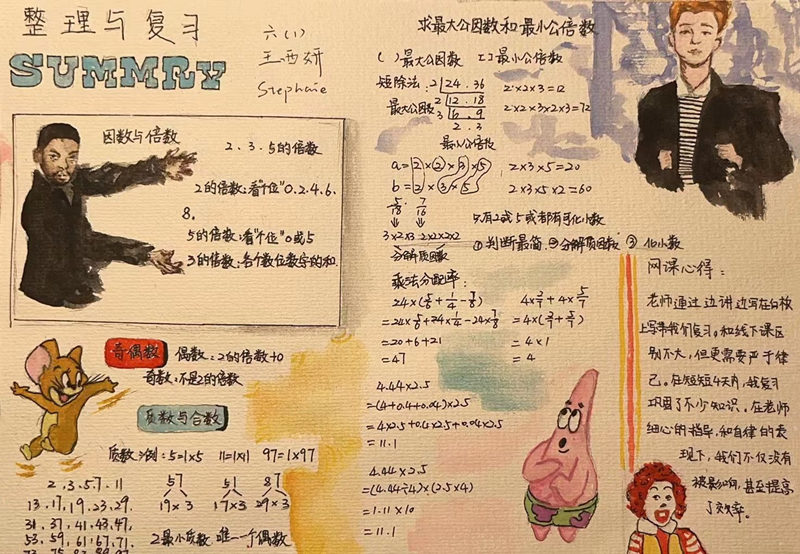 整理与复习
SUMMRY
六(1)
王西妍
Stephaie
因数与倍数
2、3、5的倍数
2的倍数:看"个位"0.2.4.6.
8。
5的倍数:看"个位"0或5
3的倍数:各个数位数字的和
奇偶数
偶数:2的倍数+0
奇数:不是2的倍数
质数与合数
质数:例:5=1×5 11=1×11 97=1×97
2、3、5、7、11
13、17、19、23、29、
31、37、41、43、47、
53、59、61、67、71、
73、75、83、89、97
57
19×3
51
17×3
87
29×3
2最小质数 唯一一个偶数
求最大公因数和最小公倍数
( )最大公因数 [ ]最小公倍数
短除法:2 24.36
最大公因数 2 12.18
3 6.9
2.3
最小公倍数
2×2×3=12
2×2×3×2×3=72
a=2×2×3×5
b=2×3×5
2×3×5=20
2×3×5×2=60
5/18 7/16
3×2×3 2×2×2×2
分解质因数
只有2或5或都有可化小数
①判断最简 ②分解质因数 ③化小数
乘法分配率:
24×(5/6+1/4-7/8)
=24×5/6+24×1/4-24×7/8
=20+6+21
=47
4×2/7+4×5/7
=4×(2/7+5/7)
=4×1
=4
4.44×2.5
=(4+0.4+0.04)×2.5
=4×2.5+0.4×2.5+0.04×2.5
=11.1
4.44×2.5
=(4.44÷4)×(2.5×4)
=1.11×10
=11.1
网课心得:
老师通过边讲边写在白板
上写带我们复习。和线下课区
别不大,但更需要严于律
己。在短短4天内,我复习
巩固了不少知识。在老师
细心的指导,和自律的表
现下,我们不仅没有
被影响,甚至提高
了效率。